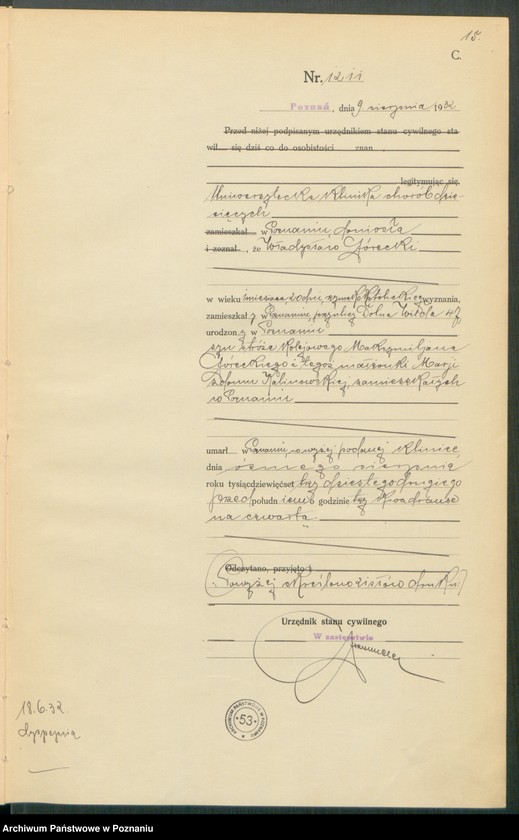 15.
C.
Nr. 1211
Poznań, dnia 9 sierpnia 1932
Przed niżej podpisanym urzędnikiem stanu cywilnego sta
wił się dziś co do osobistości znan
legitymując się
Uniwersytecka Klinika chorób dzie-
cięcych
zamieszkał w Poznaniu, doniosła
i zeznał , że Władysław Górecki
w wieku miesiąca, dni, wyznania,
zamieszkał y w Poznaniu, przy ulicy Dolna Wilda 47,
urodzon y w Poznaniu
syn stróża kolejowego Maksymiljana
Góreckiego i tegoż małżonki Marji
z domu Kalinowskiej, zamieszkałych
w Poznaniu
umarł w Poznaniu, w wyżej podanej klinice,
dnia ósmego sierpnia
roku tysiącdziewięćset trzydziestego drugiego
przed południem o godzinie trzy kwadranse
na czwartą.
Odczytano, przyjęto i
(: Powyżej skreślono druku:)
Urzędnik stanu cywilnego
W zastępstwie
18.6.32.
dyspepsia
ARCHIWUM PAŃSTWOWE W POZNANIU
53
Archiwum Państwowe w Poznaniu